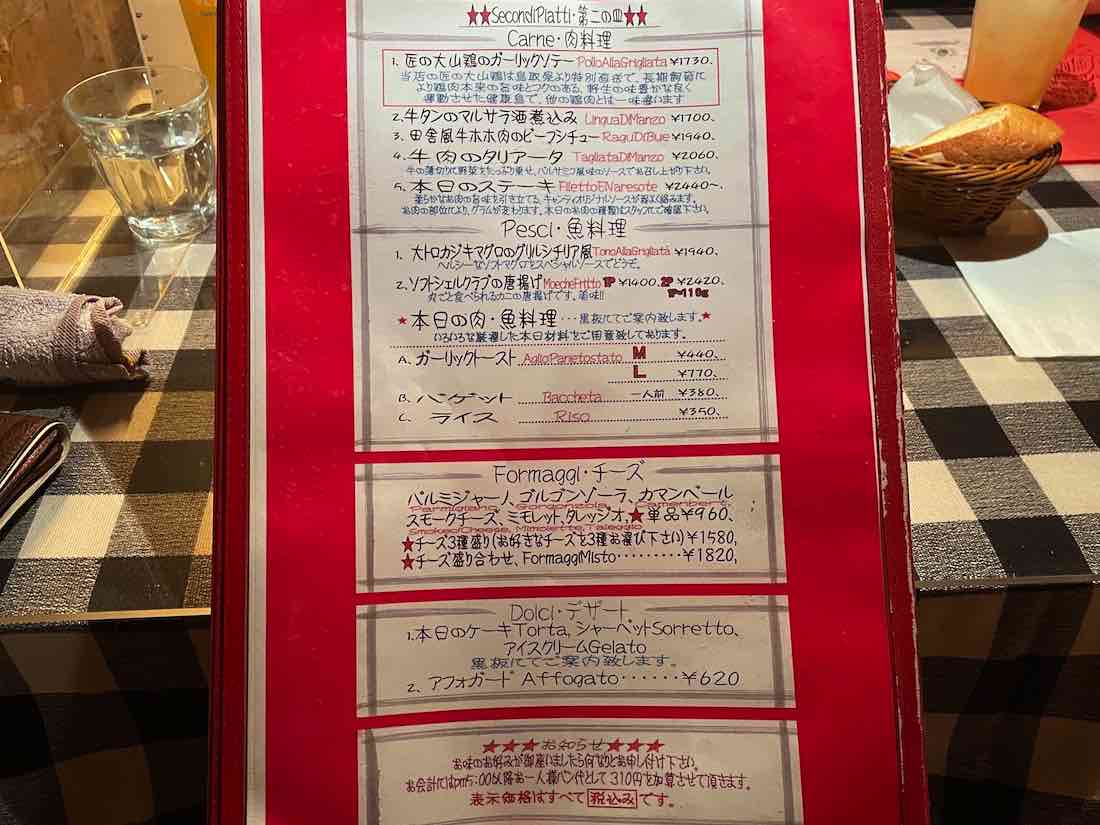 ★★SecondiPiatti・第二の皿★★
Carne・肉料理
1、匠の大山鶏のガーリックソテー PolloAllaGrigliata ¥1730、
当店の匠の大山鶏は鳥取県より特別直送で、長期飼育に
より鶏肉本来の旨味とコクのある、野生の味豊かな良く
運動させた健康鳥で、他の鶏肉とは一味違います
2、牛タンのマルサラ酒煮込み LinguaDiManzo ¥1700、
3、田舎風牛ホホ肉のビーフシチュー RaguDiBue ¥1940、
4、牛肉のタリアータ TagliataDiManzo ¥2060、
牛の薄切りに野菜をたっぷり乗せ、バルサミコ風味のソースでお召し上がり下さい。
5、本日のステーキ FilettoENaresote ¥2440〜、
柔らかなお肉の旨味を引き立てる、キャンティオリジナルソースが程よく絡みます。
お肉の部位により、グラムが変わります。本日のお肉の種類はスタッフにご確認下さい。
Pesci・魚料理
1、大トロカジキマグロのグリルシチリア風 TonoAllaGrigliatà ¥1940、
ヘルシーなソフトマグロをスペシャルソースでどうぞ。
2、ソフトシェルクラブの唐揚げ MoecheFritto 1P ¥1400、2P ¥2420、
丸ごと食べられるカニの唐揚げです。美味!! 1P=110g
★本日の肉・魚料理・・・黒板にてご案内致します。★
いろいろな厳選した本日材料をご用意致しております。
A、ガーリックトースト AglioPanetostato M ¥440、
L ¥770、
B、バゲット Baccheta 一人前 ¥380、
C、ライス Riso ¥350、
Formaggi・チーズ
パルミジャーノ、ゴルゴンゾーラ、カマンベール
Parmigiano, Gorgonzola, Camembert,
スモークチーズ、ミモレット、タレッジオ、★単品¥960、
SmokedCheese, Mimolette, Taleggio
★チーズ3種盛り(お好きなチーズを3種お選び下さい)¥1580、
★チーズ盛り合わせ、FormaggiMisto・・・・・・・・・¥1820、
Dolci・デザート
1、本日のケーキTorta、シャーベットSorretto、
アイスクリームGelato
黒板にてご案内致します。
2、アフォガード Affogato・・・・・・¥620
★★★お知らせ★★★
お味のお好みが御座いましたら何なりとお申し付け下さい。
お会計にはpm5:00以降お一人様パン代として310円を加算させて頂きます。
表示価格はすべて税込みです。